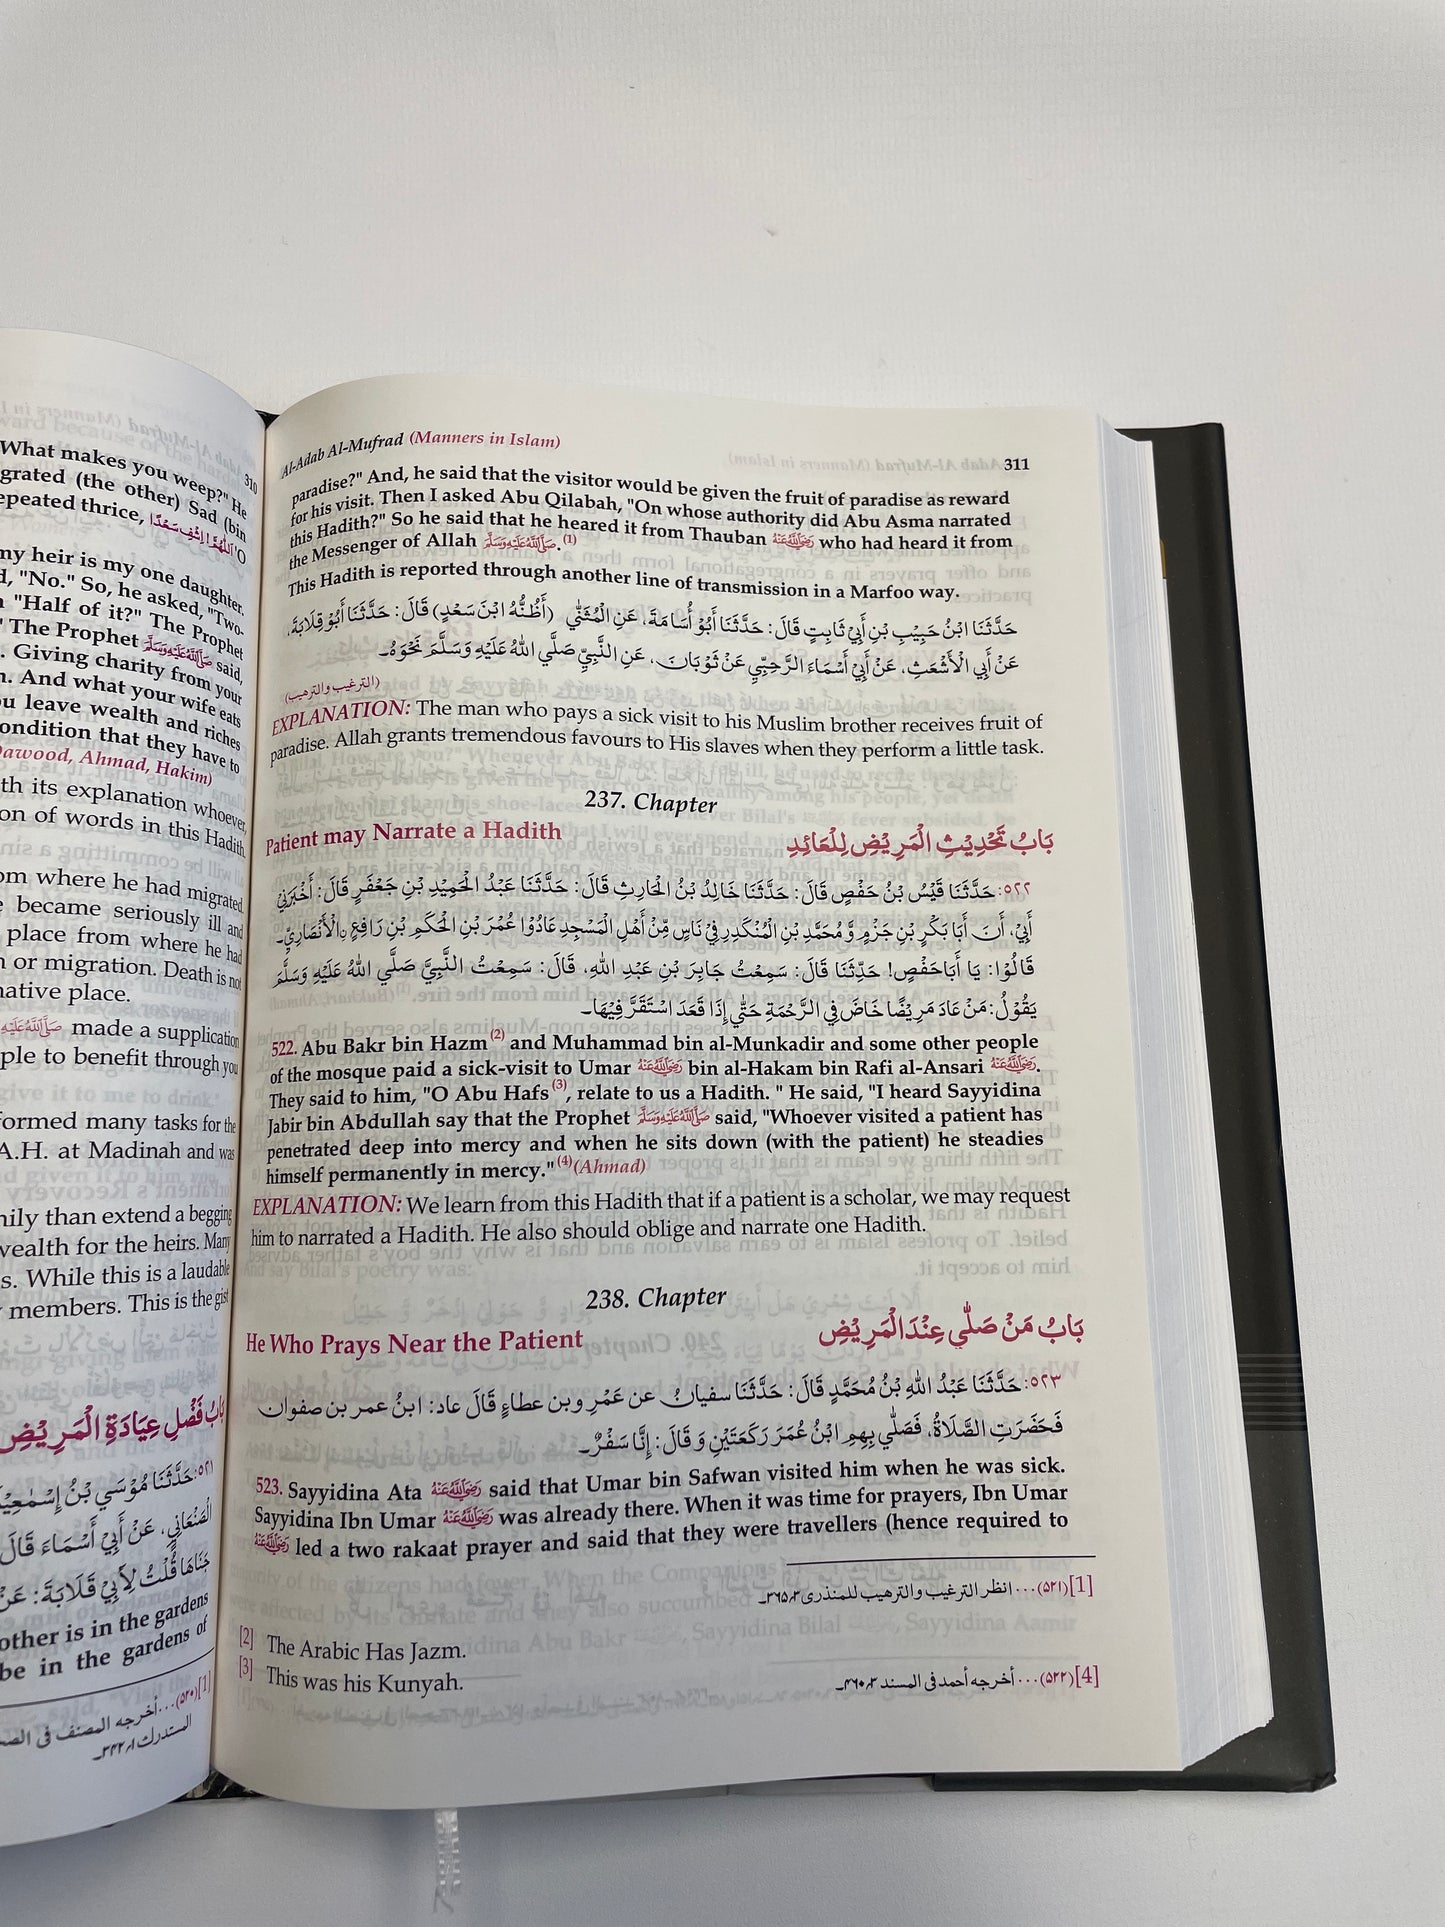 310
What makes you weep?" He
grated (the other) Sad (bin
epeated thrice, اَللّٰهُمَّ! اِشْفِ سَعْدًا O'
my heir is my one daughter.
d, "No." So, he asked, "Two-
"Half of it?" The Prophet
" The Prophet صلى الله عليه وسلم said,
. Giving charity from your
n. And what your wife eats
ou leave wealth and riches
ondition that they have to
Dawood, Ahmad, Hakim)
th its explanation whoever,
on of words in this Hadith
om where he had migrated.
e became seriously ill and
place from where he had
n or migration. Death is not
native place.
صلى الله عليه وسلم made a supplication
ple to benefit through you
formed many tasks for the
A.H. at Madinah and was
nily than extend a begging
wealth for the heirs. Many
s. While this is a laudable
members. This is the gist
بَابُ فَضْلِ عِيَادَةِ الْمَرِيْضِ
٥٢١: حَدَّثَنَا مُوْسَي بْنُ إِسْمٰعِيْ
الصَّنْعَانِي، عَنْ أَبِي أَسْمَاءَ قَالَ
جَنَاهَا قُلْتُ لِأَبِي قَلَابَةَ: عَنْ
other is in the gardens
be in the gardens of
[1](٥٢٠)...أخرجه المصنف فى الص
المستدرك ٣٤٢/١ـ
Al-Adab Al-Mufrad (Manners in Islam) 311
paradise?" And, he said that the visitor would be given the fruit of paradise as reward
for his visit. Then I asked Abu Qilabah, "On whose authority did Abu Asma narrated
this Hadith?" So he said that he heared it from Thauban رضي الله عنه who had heard it from
the Messenger of Allah صلى الله عليه وسلم.(1)
This Hadith is reported through another line of transmission in a Marfoo way.
حَدَّثَنَا ابْنُ حَبِيْبِ بْنِ أَبِيْ ثَابِتٍ قَالَ: حَدَّثَنَا أَبُوْ أُسَامَةَ، عَنِ الْمُثَنّٰي (أَظُنُّهُ ابْنَ سَعْدٍ) قَالَ: حَدَّثَنَا أَبُوْ قِلَابَةَ،
عَنْ أَبِي الْأَشْعَثِ، عَنْ أَبِيْ أَسْمَاءَ الرَّحَبِيِّ عَنْ ثَوْبَانَ، عَنِ النَّبِيِّ صَلَّي اللهُ عَلَيْهِ وَسَلَّمَ نَحْوَهُ۔
(الترغيب والترهيب)
EXPLANATION: The man who pays a sick visit to his Muslim brother receives fruit of
paradise. Allah grants tremendous favours to His slaves when they perform a little task.
237. Chapter
Patient may Narrate a Hadith بَابُ تَحْدِيْثِ الْمَرِيْضِ لِلْعَائِدِ
٥٢٢: حَدَّثَنَا قَيْسُ بْنُ حَفْصٍ قَالَ: حَدَّثَنَا خَالِدُ بْنُ الْحَارِثِ قَالَ: حَدَّثَنَا عَبْدُ الْحَمِيْدِ بْنِ جَعْفَرٍ قَالَ: أَخْبَرَنِيْ
أَبِيْ، أَنَ أَبَا بَكْرِ بْنِ حَزْمٍ وَّ مُحَمَّدِ بْنِ الْمُنْكَدِرِ فِيْ نَاسٍ مِّنْ أَهْلِ الْمَسْجِدِ عَادُوْا عُمَرَ بْنِ الْحَكَمِ بْنِ رَافِعٍ الْأَنْصَارِيِّ۔
قَالُوْا: يَا أَبَا حَفْصٍ! حَدِّثْنَا قَالَ: سَمِعْتُ جَابِرَ بْنِ عَبْدِ اللهِ، قَالَ: سَمِعْتُ النَّبِيَّ صَلَّي اللهُ عَلَيْهِ وَسَلَّمَ
يَقُوْلُ: مَنْ عَادَ مَرِيْضًا خَاضَ فِي الرَّحْمَةِ حَتّٰي إِذَا قَعَدَ اسْتَقَرَّ فِيْهَا۔
522. Abu Bakr bin Hazm(2) and Muhammad bin al-Munkadir and some other people
of the mosque paid a sick-visit to Umar رضي الله عنه bin al-Hakam bin Rafi al-Ansari رضي الله عنه.
They said to him, "O Abu Hafs(3), relate to us a Hadith. " He said, "I heard Sayyidina
Jabir bin Abdullah say that the Prophet صلى الله عليه وسلم said, "Whoever visited a patient has
penetrated deep into mercy and when he sits down (with the patient) he steadies
himself permanently in mercy."(4)(Ahmad)
EXPLANATION: We learn from this Hadith that if a patient is a scholar, we may request
him to narrated a Hadith. He also should oblige and narrate one Hadith.
238. Chapter
He Who Prays Near the Patient بَابُ مَنْ صَلّٰي عِنْدَ الْمَرِيْضِ
٥٢٣: حَدَّثَنَا عَبْدُ اللهِ بْنُ مُحَمَّدٍ قَالَ: حَدَّثَنَا سفيانُ عن عَمْرِ وبن عطاءٍ قَالَ عاد: ابنُ عمر بن صفوان
فَحَضَرَتِ الصَّلَاةُ، فَصَلّٰي بِهِمِ ابْنُ عُمَرَ رَكَعَتَيْنِ وَ قَالَ: إِنَّا سَفْرٌ۔
523. Sayyidina Ata رضي الله عنه said that Umar bin Safwan visited him when he was sick.
Sayyidina Ibn Umar رضي الله عنه was already there. When it was time for prayers, Ibn Umar
رضي الله عنه led a two rakaat prayer and said that they were travellers (hence required to
[1](٥٢١)... انظر الترغيب والترهيب للمنذرى ٣٦٥/٣ـ
[2] The Arabic Has Jazm.
[3] This was his Kunyah.
[4](٥٢٢)... أخرجه أحمد فى المسند ٤٦٠/٣ـ